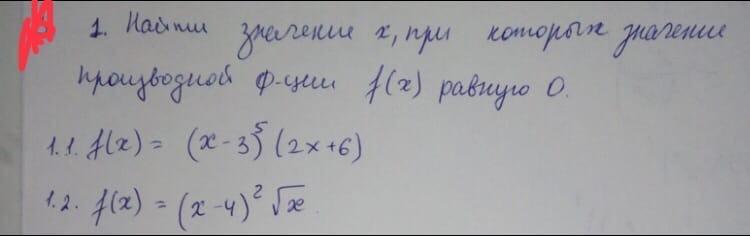 1. Найти значение x, при которых значение
производной ф-ции f(x) равную 0.
1.1. f(x) = (x-3)⁵ (2x+6)
1.2. f(x) = (x-4)² √x